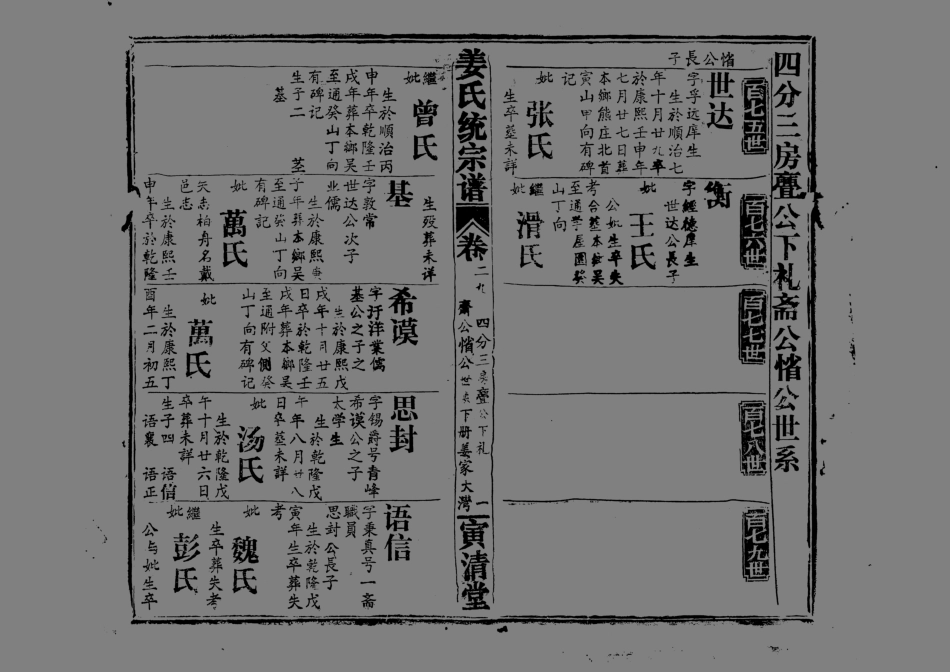 四分三房亹公下礼斋公愭公世系
百七五世
愭公長子
世达
字孚远庠生
生於順治七
年十月廿九卒
於康熙壬申年
七月廿七日葬
本鄉熊庄北首
寅山甲向有碑
记
妣
张氏
生卒墓未詳
百七六世
衡
字經德庠生
世达公長子
妣
王氏
公妣生卒失
考合墓本鄉吴
至通学屋園癸
山丁向
繼妣
滑氏
百七七世
百七八世
百七九世
姜氏统宗谱
卷
二九
四分三房亹公下礼
斋公愭公世表下册姜家大灣
一
寅清堂
繼妣
曾氏
生於順治丙
申年卒乾隆壬
戌年葬本鄉吴
至通癸山丁向
有碑记
生子二
基
莖
生殁葬未详
基
字敦常
世达公次子
业儒
生於康熙庚
子年葬本鄉吴
至通癸山丁向
有碑记
妣
萬氏
矢志柏舟名戴
邑志
生於康熙壬
申年卒於乾隆
希谟
字汙洋業儒
基公之子
生於康熙戊
戌年十月廿五
日卒於乾隆壬
戌年葬本鄉吴
至通附父側癸
山丁向有碑记
妣
萬氏
生於康熙丁
酉年二月初五
思封
字锡爵号青峰
希谟公之子
太学生
生於乾隆戊
午年八月廿八
日卒墓未詳
妣
汤氏
生於乾隆戊
午十月廿六日
卒葬未詳
生子四
语信
语襄
语正
语信
字秉真号一斋
職員
思封公長子
生於乾隆戊
寅年生卒葬失
考
妣
魏氏
生卒葬失考
繼妣
彭氏
公与妣生卒